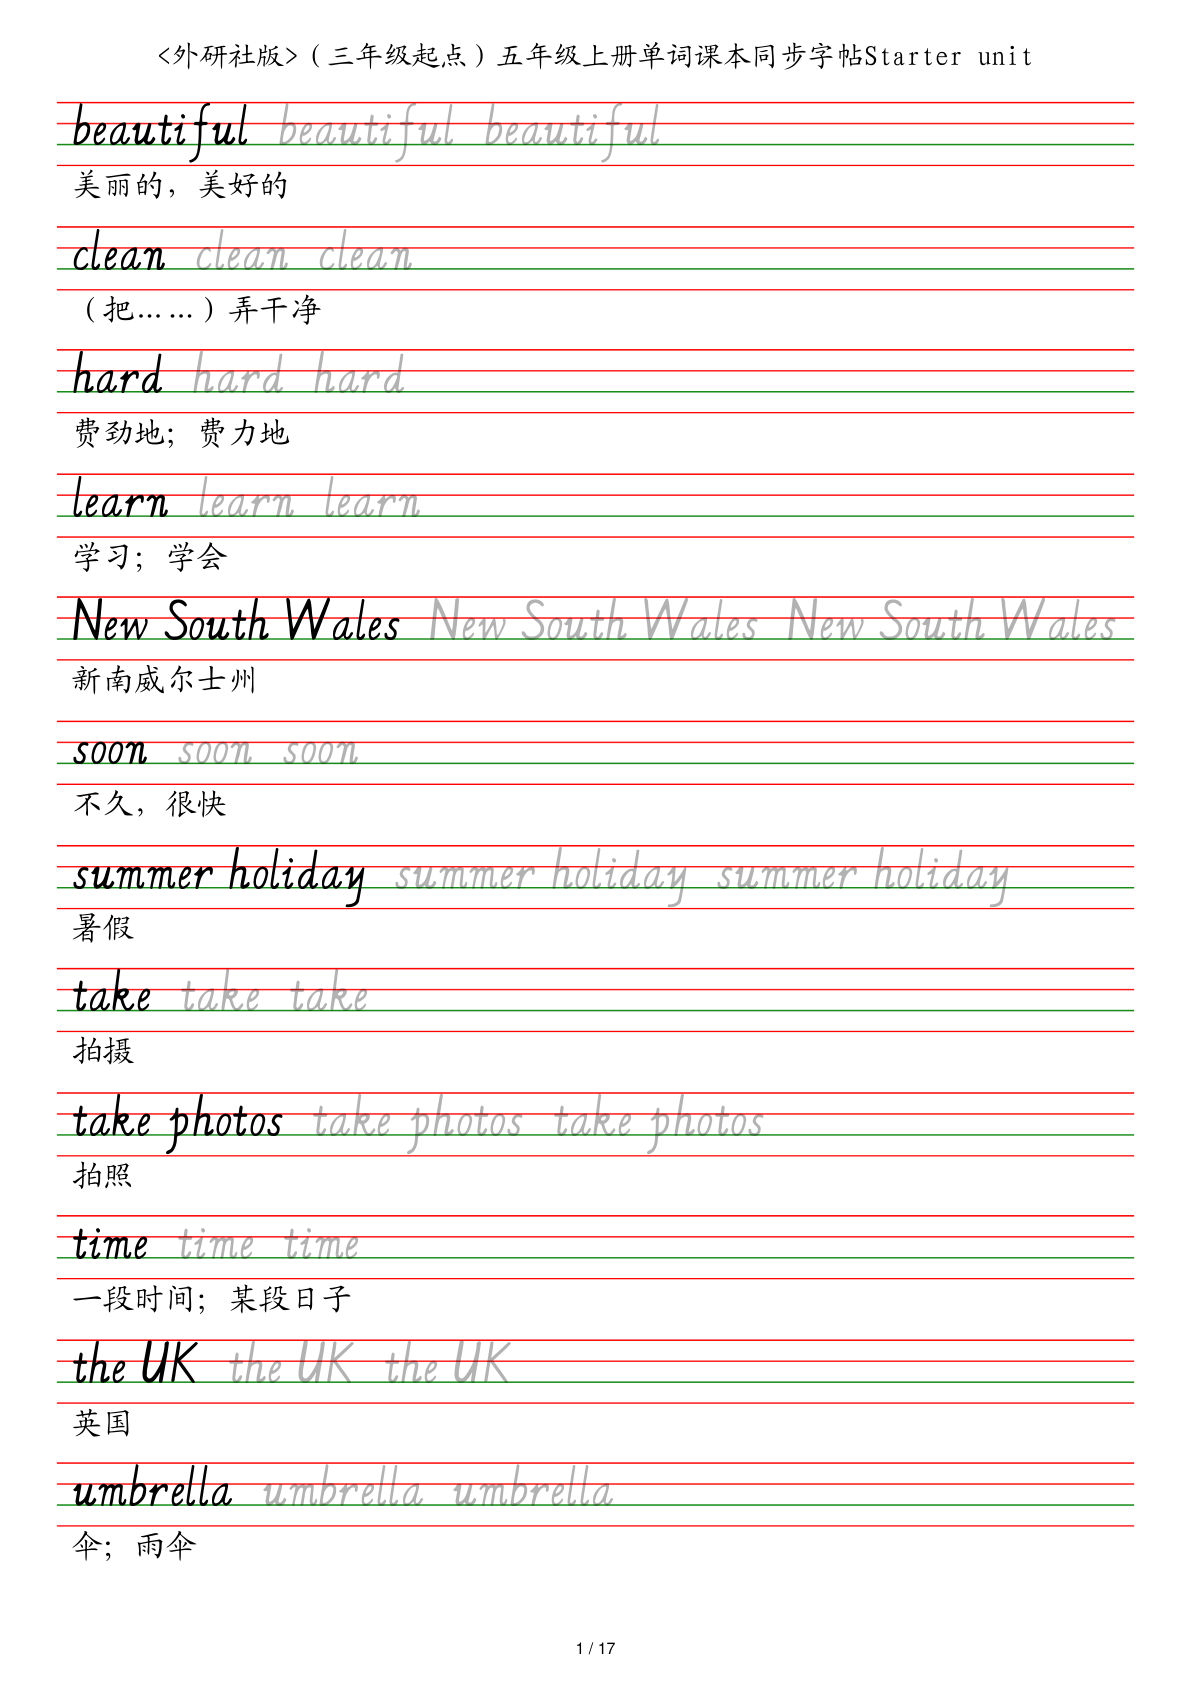 <外研社版>（三年级起点）五年级上册单词课本同步字帖Starter unit
beautiful beautiful beautiful
美丽的，美好的
clean clean clean
（把……）弄干净
hard hard hard
费劲地；费力地
learn learn learn
学习；学会
New South Wales New South Wales New South Wales
新南威尔士州
soon soon soon
不久，很快
summer holiday summer holiday summer holiday
暑假
take take take
拍摄
take photos take photos take photos
拍照
time time time
一段时间；某段日子
the UK the UK the UK
英国
umbrella umbrella umbrella
伞；雨伞
1 / 17